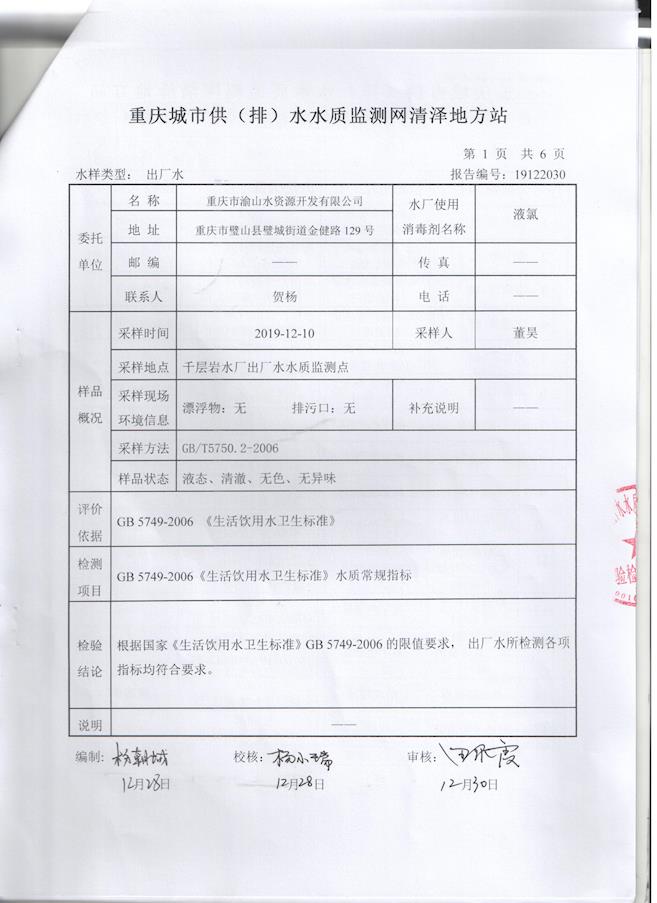 重庆城市供（排）水水质监测网清泽地方站
第 1 页 共 6 页
水样类型： 出厂水 报告编号：19122030
委托单位
名 称 重庆市渝山水资源开发有限公司 水厂使用消毒剂名称 液氯
地 址 重庆市璧山县璧城街道金健路 129 号
邮 编 —— 传 真 ——
联系人 贺杨 电 话 ——
样品概况
采样时间 2019-12-10 采样人 董昊
采样地点 千层岩水厂出厂水水质监测点
采样现场环境信息 漂浮物：无 排污口：无 补充说明 ——
采样方法 GB/T5750.2-2006
样品状态 液态、清澈、无色、无异味
评价依据 GB 5749-2006 《生活饮用水卫生标准》
检测项目 GB 5749-2006《生活饮用水卫生标准》水质常规指标
检验结论 根据国家《生活饮用水卫生标准》GB 5749-2006 的限值要求， 出厂水所检测各项
指标均符合要求。
说明 ——
编制： 校核：杨小瑞 审核：
12月28日 12月28日 12月30日